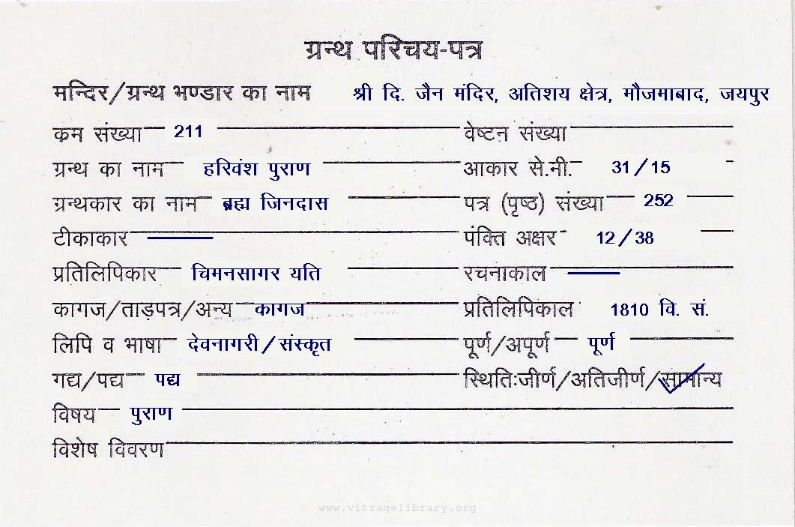 ग्रन्थ परिचय-पत्र
मन्दिर/ग्रन्थ भण्डार का नाम श्री दि. जैन मंदिर, अतिशय क्षेत्र, मौजमाबाद, जयपुर
कम संख्या 211 वेष्टन संख्या
ग्रन्थ का नाम हरिवंश पुराण आकार से.मी. 31/15
ग्रन्थकार का नाम ब्रह्म जिनदास पत्र (पृष्ठ) संख्या 252
टीकाकार पंक्ति अक्षर 12/38
प्रतिलिपिकार चिमनसागर यति रचनाकाल
कागज/ताड़पत्र/अन्य कागज प्रतिलिपिकाल 1810 वि. सं.
लिपि व भाषा देवनागरी/संस्कृत पूर्ण/अपूर्ण पूर्ण
गद्य/पद्य पद्य स्थितिःजीर्ण/अतिजीर्ण/सामान्य
विषय पुराण
विशेष विवरण
www.vitragelibrary.org